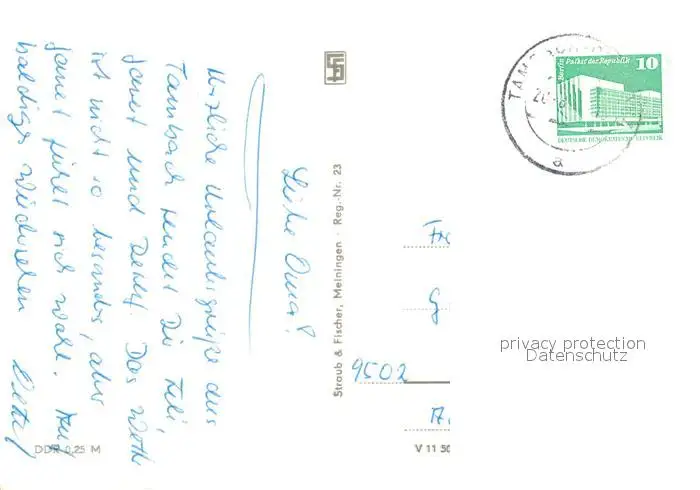 Liebe Oma!
Herzliche Urlaubsgrüße aus
Tambach sendet Dir
Janet und Detlef. Das Wett
ist nicht so besonders, aber
Janet fühlt sich wohl. Auf
baldiges Wiedersehen Detlef
DDR 0,25 M
Straub & Fischer, Meiningen · Reg.-Nr. 23
V 11 50
TAMB
20
a
Berlin Palast der Republik
10
DEUTSCHE DEMOKRATISCHE REPUBLIK
9502
privacy protection
Datenschutz